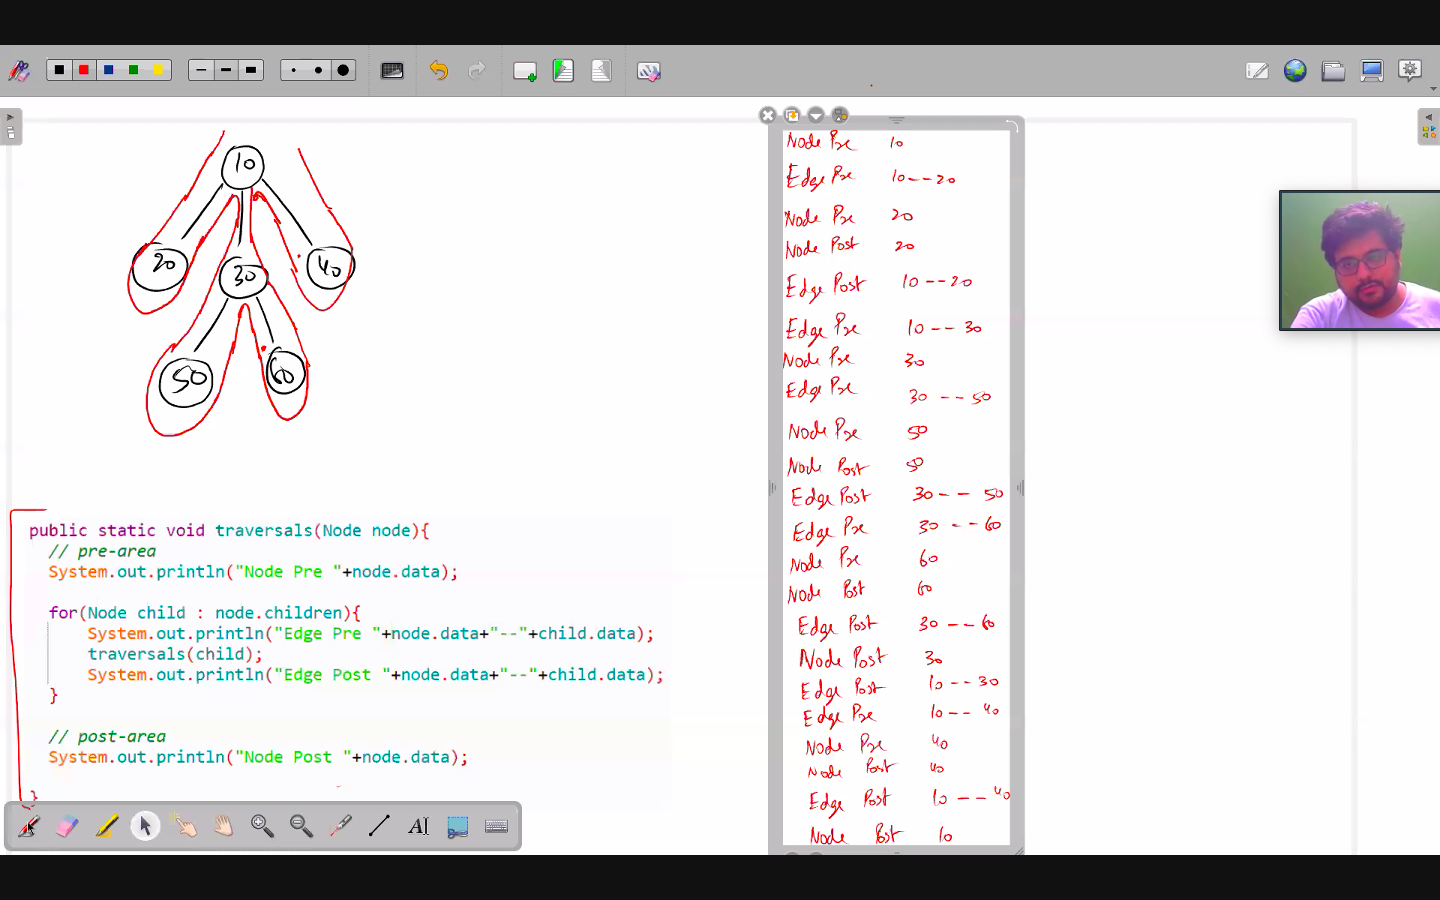 10
20
30
40
50
60
public static void traversals(Node node){
// pre-area
System.out.println("Node Pre "+node.data);
for(Node child : node.children){
System.out.println("Edge Pre "+node.data+"--"+child.data);
traversals(child);
System.out.println("Edge Post "+node.data+"--"+child.data);
}
// post-area
System.out.println("Node Post "+node.data);
}
Node Pre 10
Edge Pre 10--20
Node Pre 20
Node Post 20
Edge Post 10--20
Edge Pre 10--30
Node Pre 30
Edge Pre 30--50
Node Pre 50
Node Post 50
Edge Post 30--50
Edge Pre 30--60
Node Pre 60
Node Post 60
Edge Post 30--60
Node Post 30
Edge Post 10--30
Edge Pre 10--40
Node Pre 40
Node Post 40
Edge Post 10--40
Node Post 10